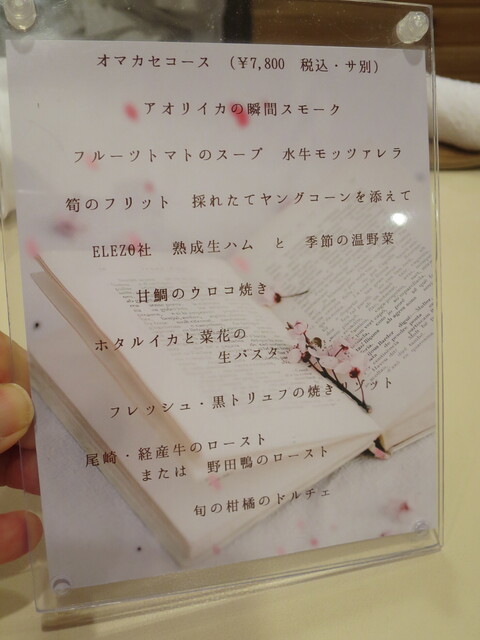 オマカセコース （￥7,800　税込・サ別）
アオリイカの瞬間スモーク
フルーツトマトのスープ　水牛モッツァレラ
筍のフリット　採れたてヤングコーンを添えて
ELEZO社　熟成生ハム　と　季節の温野菜
甘鯛のウロコ焼き
ホタルイカと菜花の
生パスタ
フレッシュ・黒トリュフの焼きリゾット
尾崎・経産牛のロースト
または　野田鴨のロースト
旬の柑橘のドルチェ